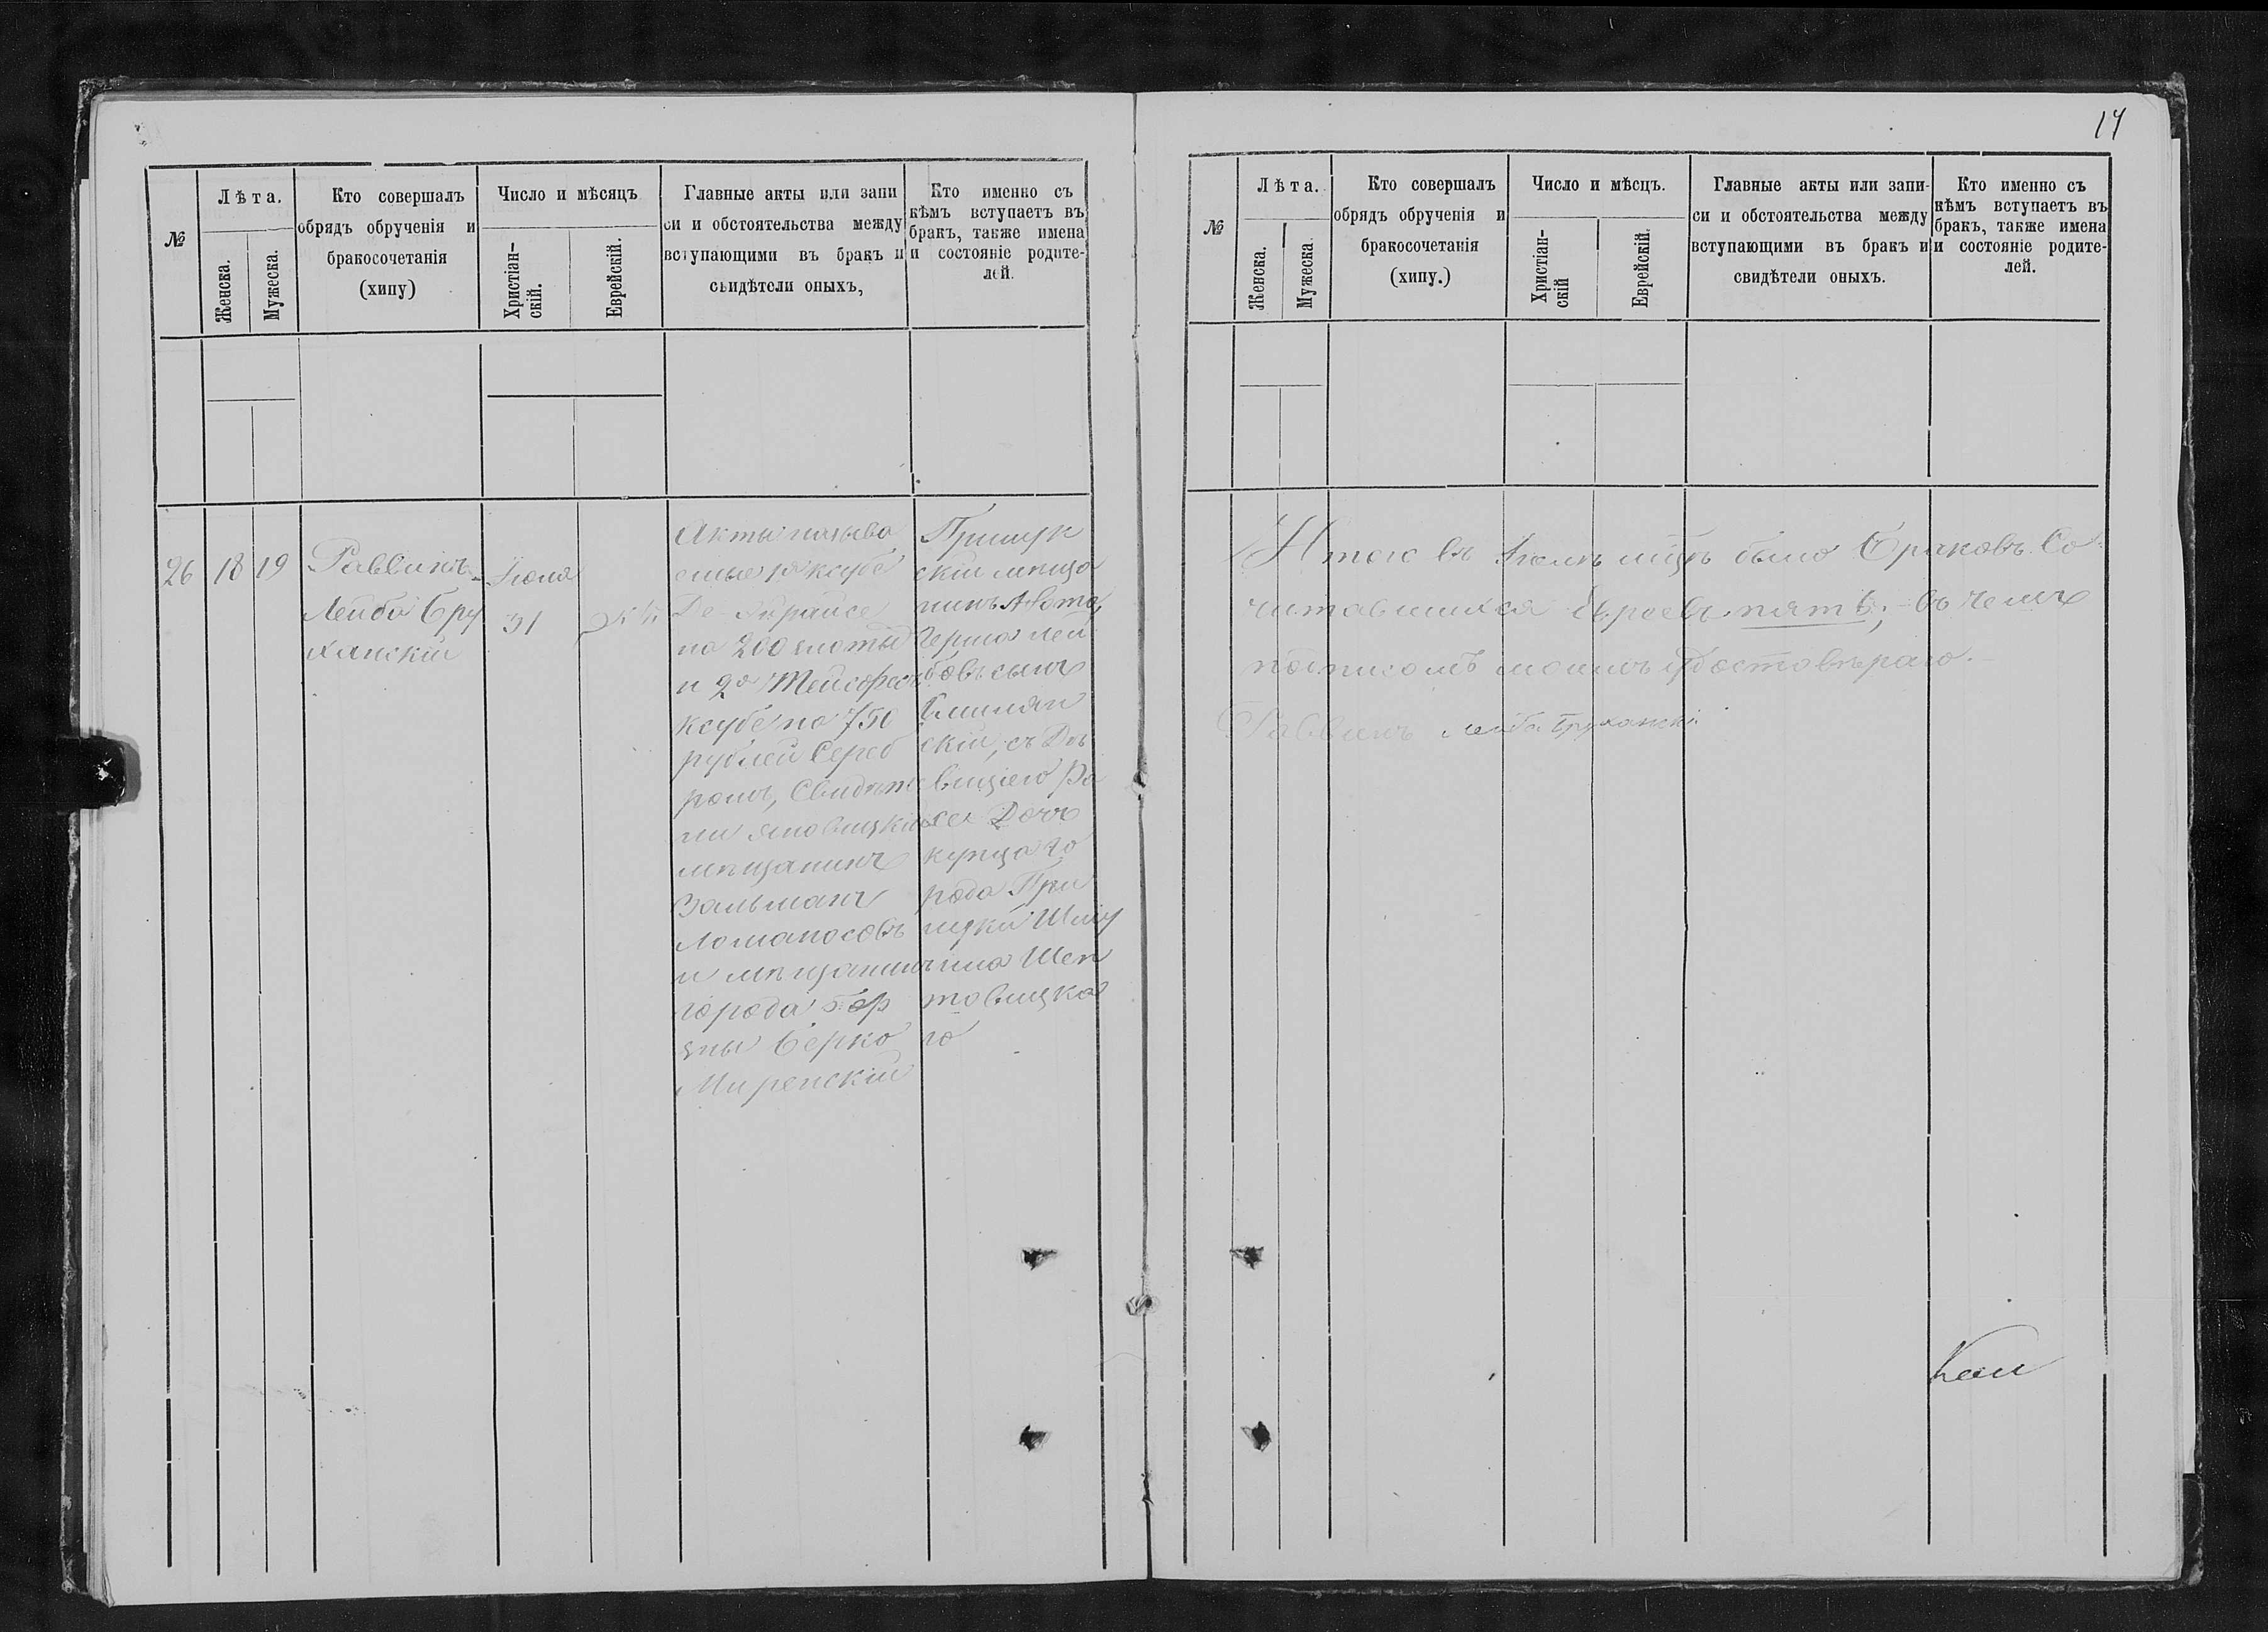 17
№
Лѣта.
Женска.
Мужеска.
Кто совершалъ
обрядъ обрученія и
бракосочетанія
(хипу)
Число и мѣсяцъ
Христіан-
скій.
Еврейскій.
Главные акты или запи
си и обстоятельства между
вступающими въ бракъ и
свидѣтели оныхъ,
Кто именно съ
кѣмъ вступаетъ въ
бракъ, также имена
и состояніе родите-
лей.
26
18
19
Раввинъ
Лейба Бру
ханскій
Іюля
31
Акты называ
емые 1й ксубе
De-
на 200 злотыхъ
и 2й Тейсефесъ
ксубе на 750
рублей Сереб
ромъ, Свидѣте
ли
мѣщанинъ
Залманъ
Ломаносовъ
и мѣщанинъ
города
Берко
Миренскій
Прилук
скій мѣща
нинъ
Герша Лей
бовъ сынъ
скій, съ Дѣ
вицею Ра
хе Дочь
купца го
рода При
луки Шлiу
ма Шеп
товицка
го
№
Лѣта.
Женска.
Мужеска.
Кто совершалъ
обрядъ обрученія и
бракосочетанія
(хипу.)
Число и мѣсцъ.
Христіан-
скій
Еврейскій.
Главные акты или запи-
си и обстоятельства между
вступающими въ бракъ и
свидѣтели оныхъ.
Кто именно съ
кѣмъ вступаетъ въ
бракъ, также имена
и состояніе родите-
лей.
Итого въ Іюлѣ мѣцѣ было Браковъ Со
читавшихся Евреевъ пять; въ чемъ
подписомъ моимъ удостовѣраю.
Раввинъ Лейба Бруханскій